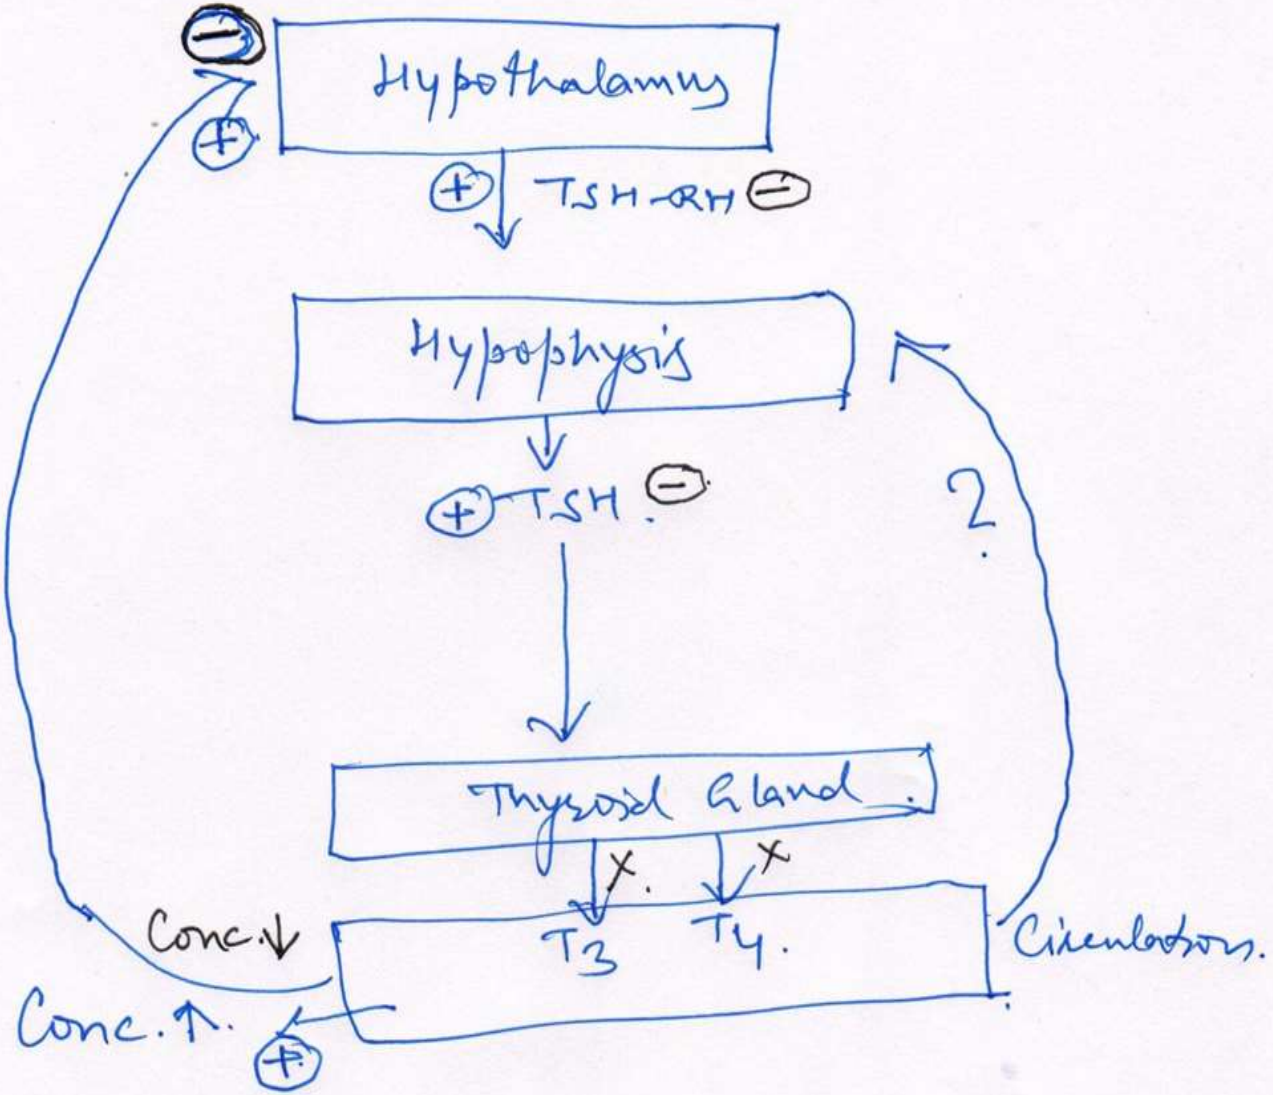 ⊖
Hypothalamus
⊕
⊕ TSH-RH ⊖
Hypophysis
⊕ TSH. ⊖
?
Thyroid Gland.
X. X
T3 T4.
Conc.↓
Circulation.
Conc.↑.
⊕